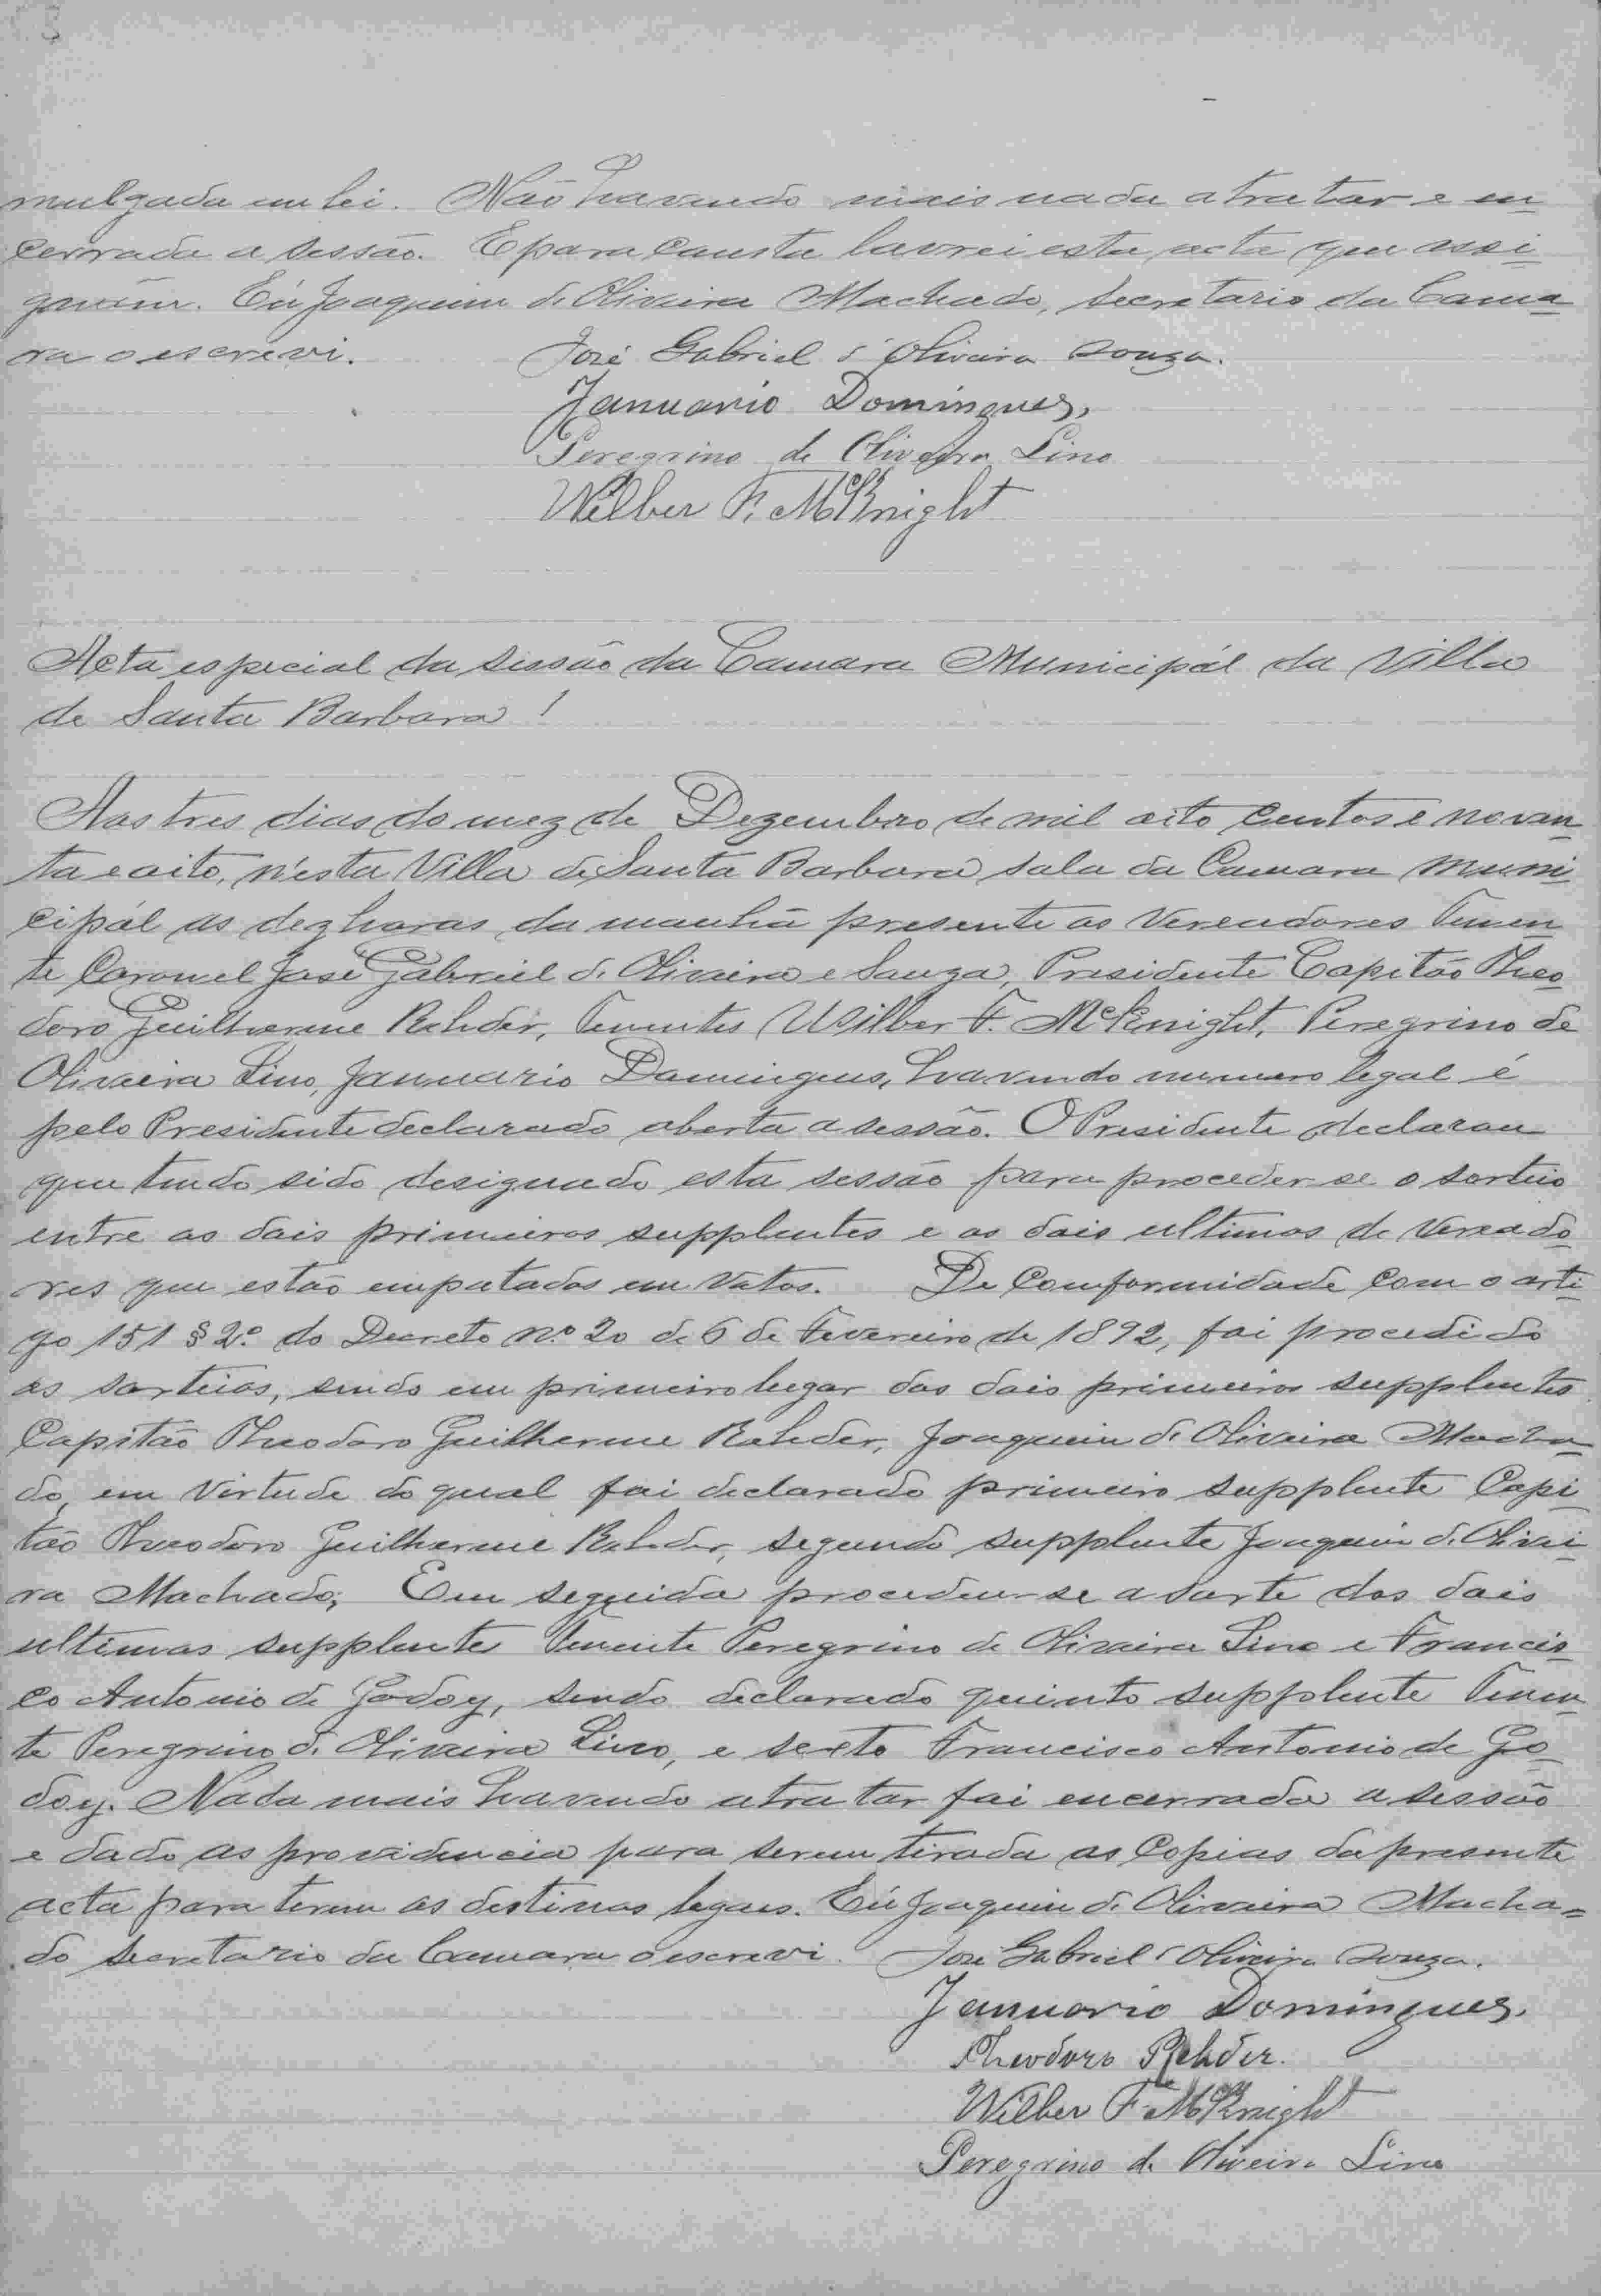 mulgada em lei. Não havendo mais nada a tratar e en
cerrada a sessão. E para consta lavrei esta acta que assi
gnarão. Eu Joaquim de Oliveira Machado, secretario da Cama
ra o escrevi. José Gabriel d'Oliveira Souza.
Januario Domingues,
Peregrino de Oliveira Lino
Wilber F. McKnight
Acta especial da sessão da Camara Municipál da Villa
de Santa Barbara!
Aos tres dias do mez de Dezembro de mil oito centos e noven
ta e oito, n'esta Villa de Santa Barbara sala da Camara Muni
cipál as dez horas da manhã presente os Vereadores Tenen
te Coronel José Gabriel de Oliveira e Souza, Presidente Capitão Theo
doro Guilherme Rehder, Tenentes Wilber F. McKnight, Peregrino de
Oliveira Lino, Januario Domingues, havendo numero legal é
pelo Presidente declarado aberta a sessão. O Presidente declarou
que tendo sido designado esta sessão para proceder-se o sorteio
entre os dois primeiros supplentes e os dois ultimos de Vereado
res que estão empatados em Votos. De Comformidade com o arti
go 151 § 2º do Decreto nº 20 de 6 de Fevereiro de 1892, foi procedido
os sorteios, sendo em primeiro lugar dos dois primeiros supplentes
Capitão Theodoro Guilherme Rehder, Joaquim de Oliveira Macha
do, em Virtude do qual foi declarado primeiro supplente Capi
tão Theodoro Guilherme Rehder, segundo supplente Joaquim de Olivei
ra Machado; Em seguida procedeu-se a sorte dos dois
ultimos supplente Tenente Peregrino de Oliveira Lino e Francis
co Antonio de Godoy, sendo declarado quinto supplente Tenen
te Peregrino de Oliveira Lino, e sexto Francisco Antonio de Go
doy. Nada mais havendo a tratar foi encerrada a sessão
e dado as providencia para serem tirada as Copias da presente
acta para terem os destinos legaes. Eu Joaquim de Oliveira Macha=
do secretario da Camara o escrevi. José Gabriel d'Oliveira Souza.
Januario Domingues.
Theodoro Rehder.
Wilber F. McKnight
Peregrino de Oliveira Lino